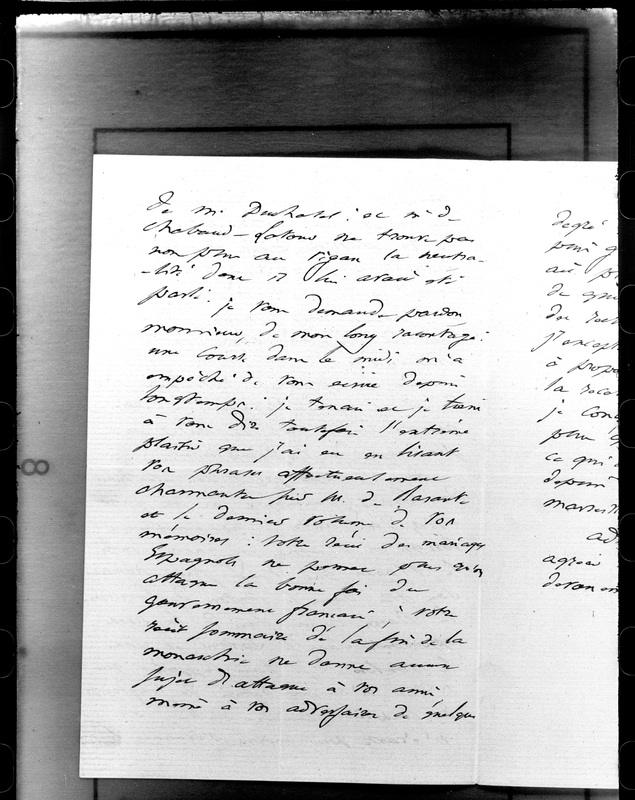 de M. Duchatel : et M. de
Chabaud-Latour ne trouve pas
non plus au Vigan la neutra-
-lité dont il lui avait été
parlé. je vous demande pardon
monsieur, de mon long racontage :
une course dans le midi m'a
empêché de vous écrire depuis
longtemps : je tenais et je tiens
à vous dire toutefois l'extrême
plaisir que j'ai eu en lisant
vos phrases affectueusement
charmantes sur M. de Barante
et le dernier volume de vos
mémoires : votre récit des mariages
Espagnols ne permet pas qu'on
attaque la bonne foi du
gouvernement français, & votre
récit sommaire de la fin de la
monarchie ne donne aucun
sujet d'attaque à vos amis
même à vos adversaires de quelque
degré
pour
au
de
des
j'
à
la
je
pour
ce qui
depuis
agréer